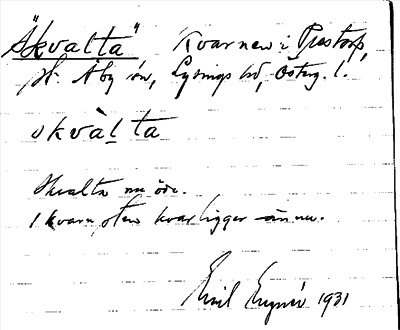 "Skvalta" Kvarnen i Prestorp,
på Åby ån, Lysings hd, Österg. l.
skvàlta
Skvalta nu öde.
1 kvarnsten kvarligger ännu.
Emil 1931